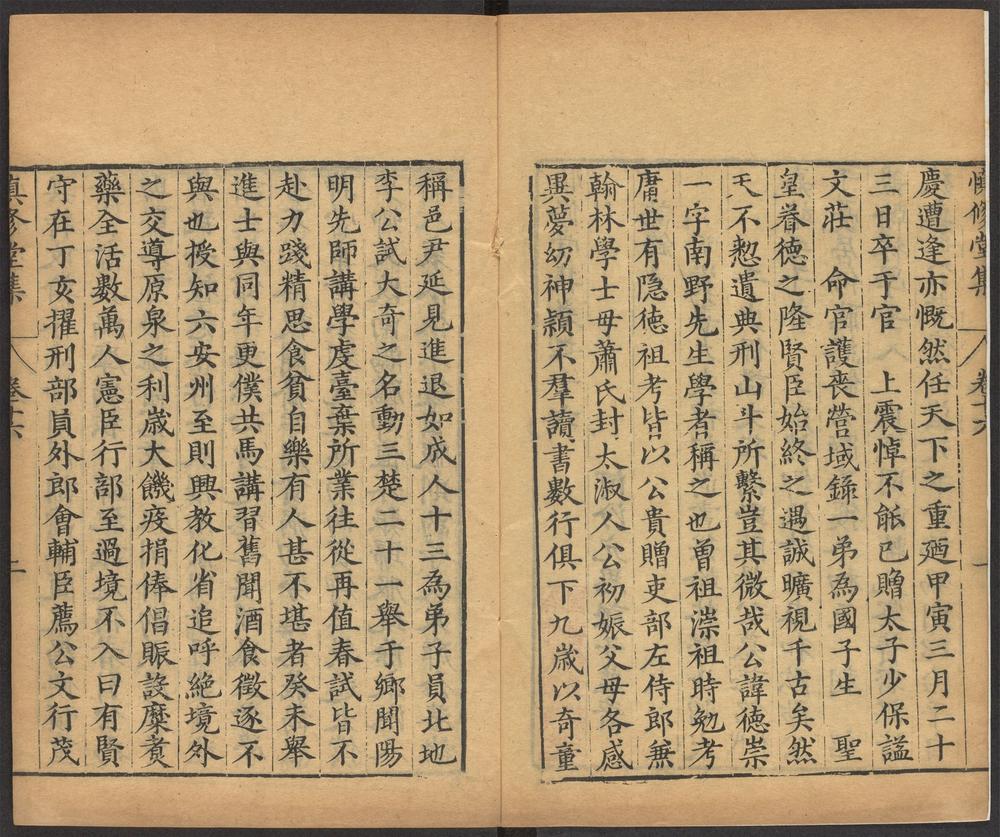 慎修堂集 卷十六 一
慶遭逢亦慨然任天下之重廼甲寅三月二十
三日卒于官 上震悼不能已贈太子少保謚
文莊 命官護喪營域錄一弟為國子生 聖
皇眷德之隆賢臣始終之遇誠曠視千古矣然
天不憖遺典刑山斗所繫豈其微哉公諱德崇
一字南野先生學者稱之也曾祖漴祖時勉考
庸世有隐德祖考皆以公貴贈吏部左侍郎兼
翰林學士母蕭氏封太淑人公初娠父母各感
異夢幼神頴不羣讀書數行俱下九歲以奇童
稱邑尹延見進退如成人十三為弟子員北地
李公試大奇之名動三楚二十一舉于鄉聞陽
明先師講學虔臺棄所業往從再值春試皆不
赴力踐精思食貧自樂有人甚不堪者癸未舉
進士與同年更僕共馬講習舊聞酒食徵逐不
與也授知六安州至則興教化省追呼絶境外
之交導原泉之利歲大饑疫捐俸倡賑設糜煑
藥全活數萬人憲臣行部至過境不入曰有賢
守在丁亥擢刑部員外郎會輔臣薦公文行茂
慎修堂集 卷十六 二